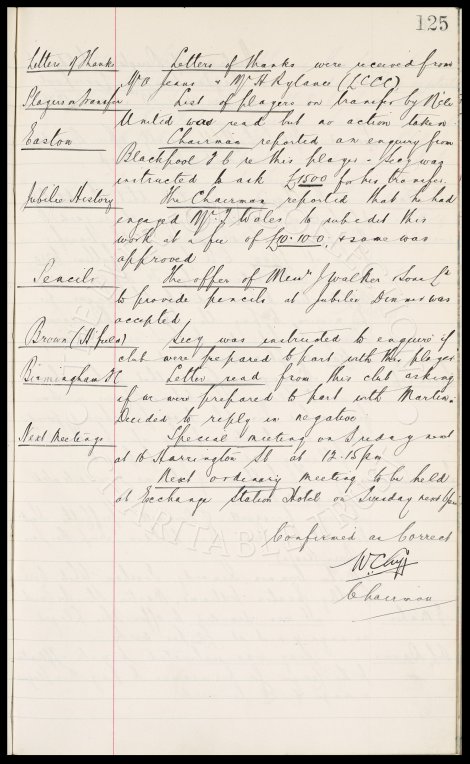 125
Letters of Thanks Letters of thanks were received from
Mr O Jeans & Mr H Rylance (LCCC)
Players on Transfer List of players on transfer by N'cle
United was read but no action taken
Easton Chairman reported an enquiry from
Blackpool F C re this player - Secy was
instructed to ask £1500 for his transfer.
Jubilee History The Chairman reported that he had
engaged Mr J Wales to subedit this
work at a fee of £10.10.0, & same was
approved
Pencils The offer of Messrs J Walker & Sons Ld
to provide pencils at Jubilee Dinner was
accepted
Brown (H'field) Secy was instructed to enquire if
club were prepared to part with this player
Birmingham FC Letter read from this club asking
if we were prepared to part with Martin.
Decided to reply in negative.
Next Meetings Special meeting on Friday next
at 16 Harrington St at 12.15pm
Next ordinary meeting to be held
at Exchange Station Hotel on Tuesday next
Confirmed as Correct
W.C. Cuff
Chairman